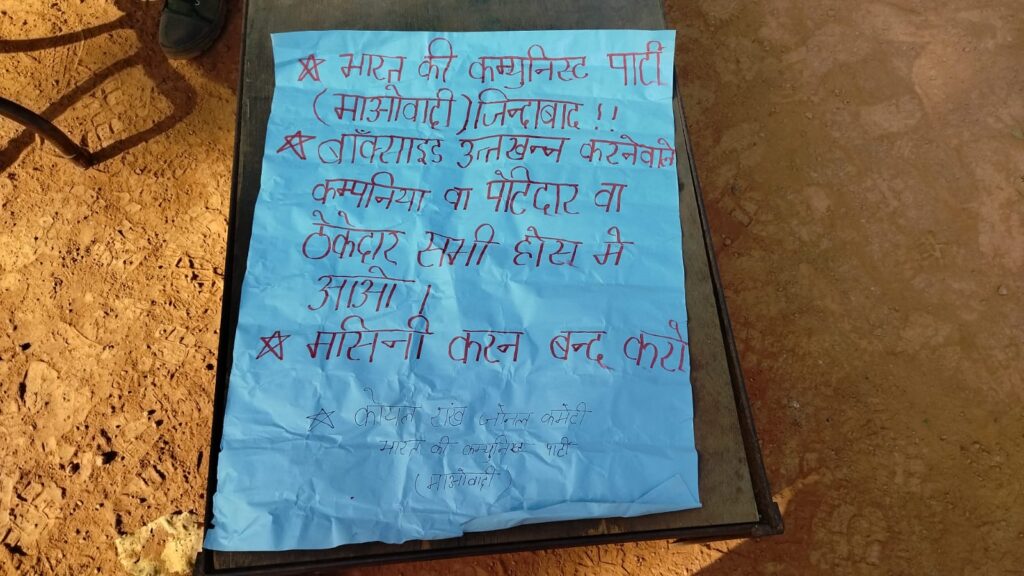 ☆ भारत की कम्युनिस्ट पार्टी
(माओवादी) जिन्दाबाद !!
☆ बॉक्साइड उत्तखन्न करनेवाले
कम्पनिया वा पोटिदार वा
ठेकेदार सभी होस मे
आओ ।
☆ मसिनी करन बन्द करो
☆ कोयल शंख जोनल कमेटी
भारत की कम्युनिस्ट पार्टी
(माओवादी)